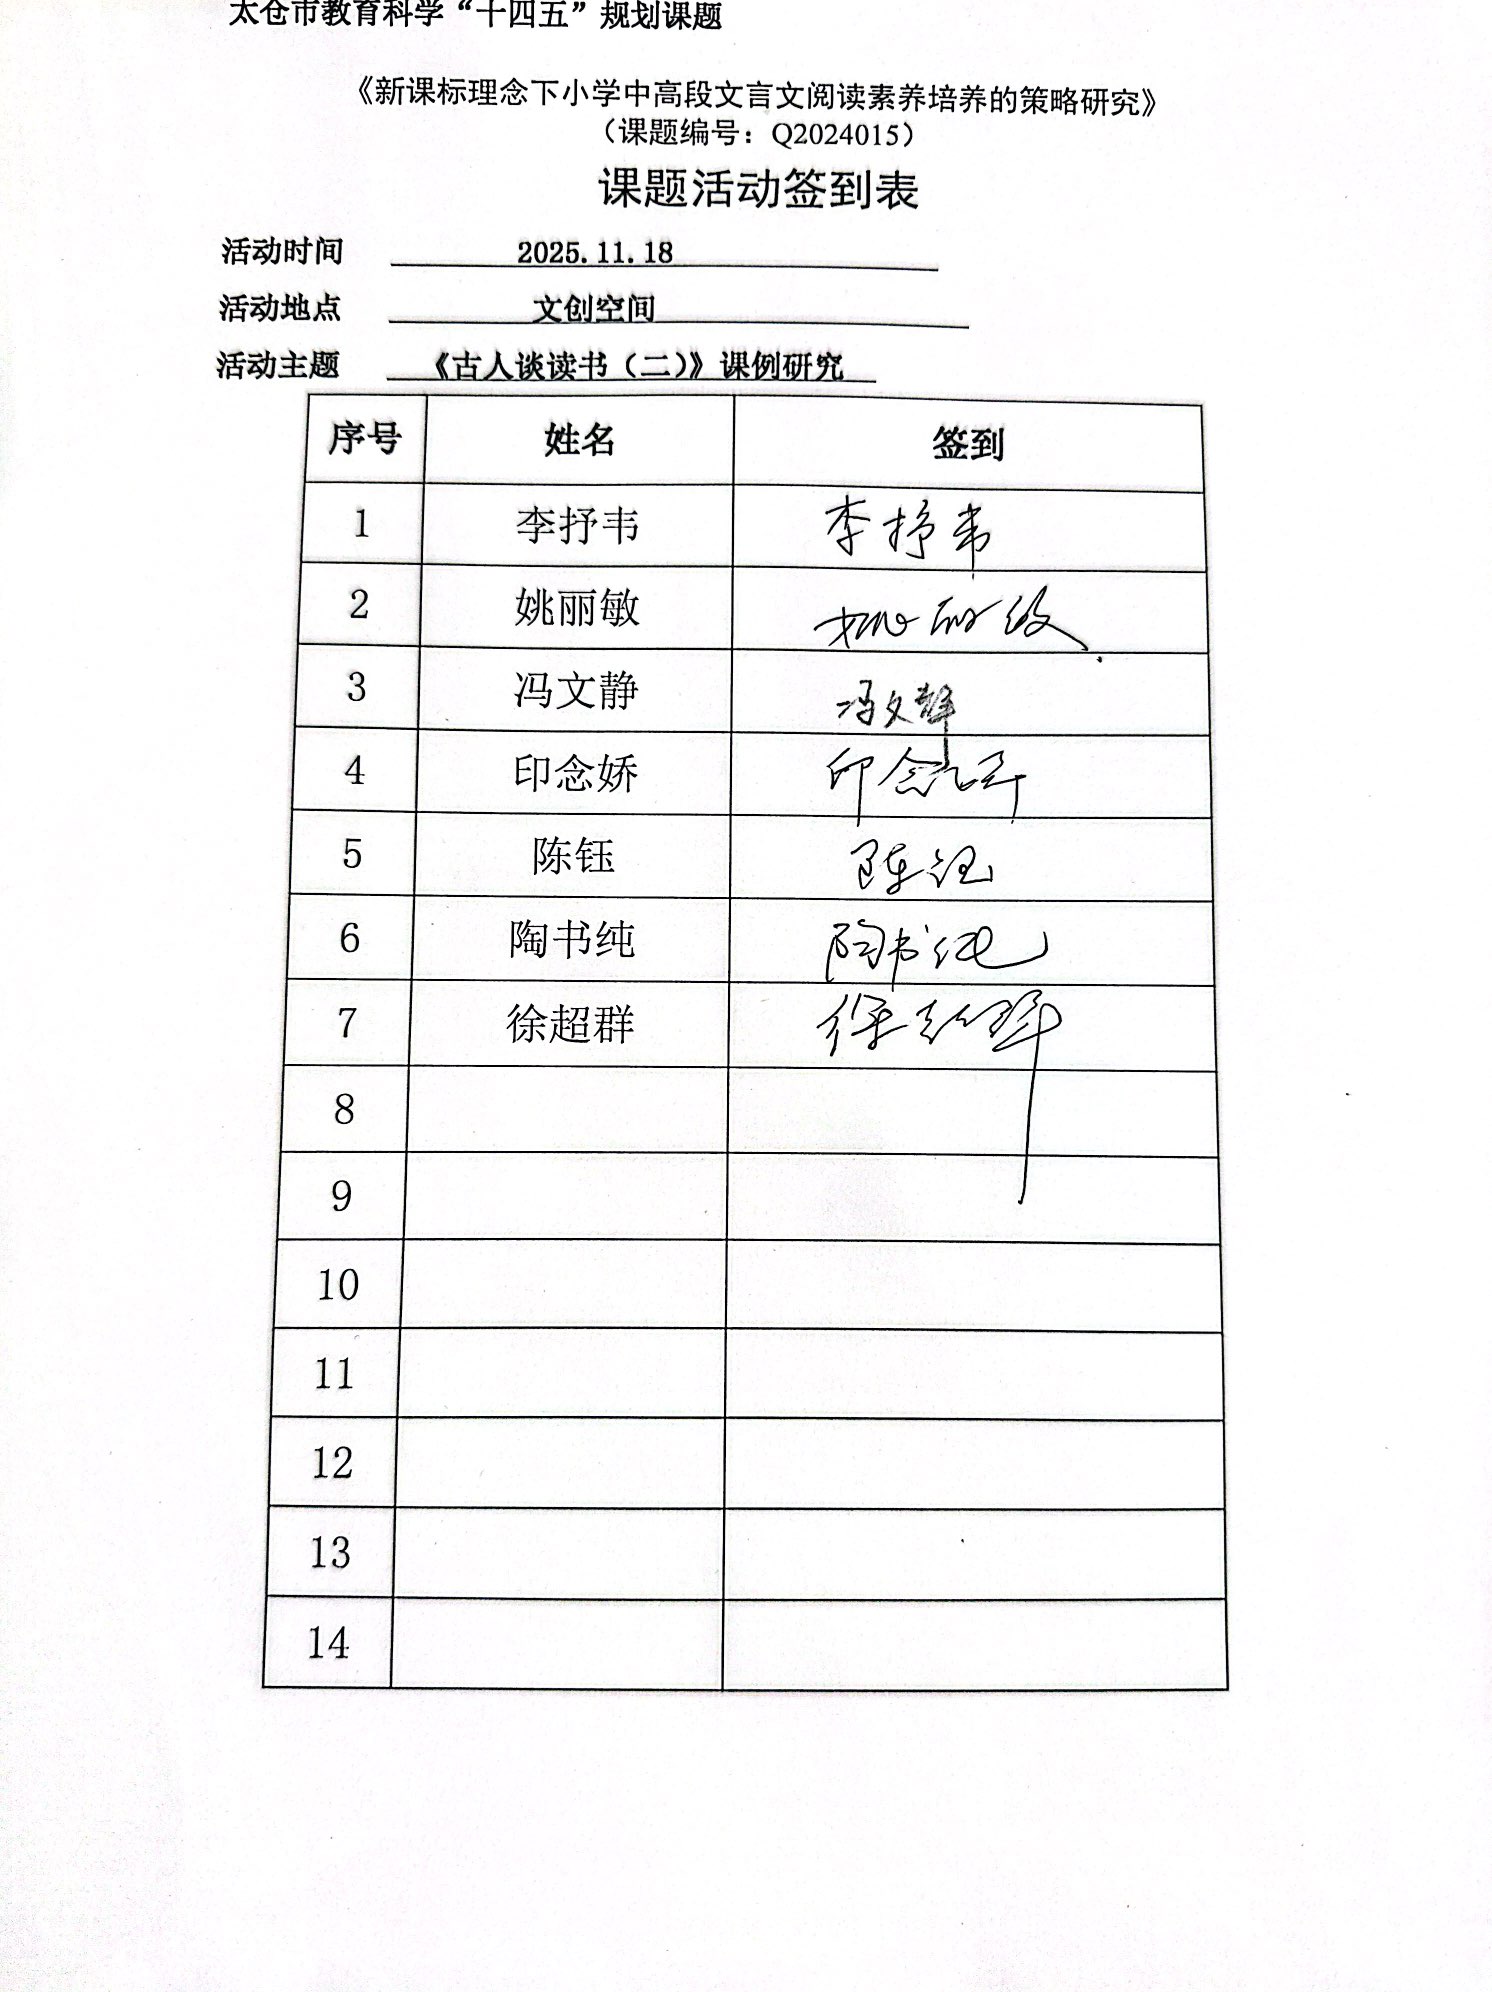 太仓市教育科学“十四五”规划课题
《新课标理念下小学中高段文言文阅读素养培养的策略研究》
（课题编号：Q2024015）
课题活动签到表
活动时间 2025.11.18
活动地点 文创空间
活动主题 《古人谈读书（二）》课例研究
序号 姓名 签到
1 李抒韦 李抒韦
2 姚丽敏 姚丽敏
3 冯文静 冯文静
4 印念娇 印念娇
5 陈钰 陈钰
6 陶书纯 陶书纯
7 徐超群 徐超群
8
9
10
11
12
13
14